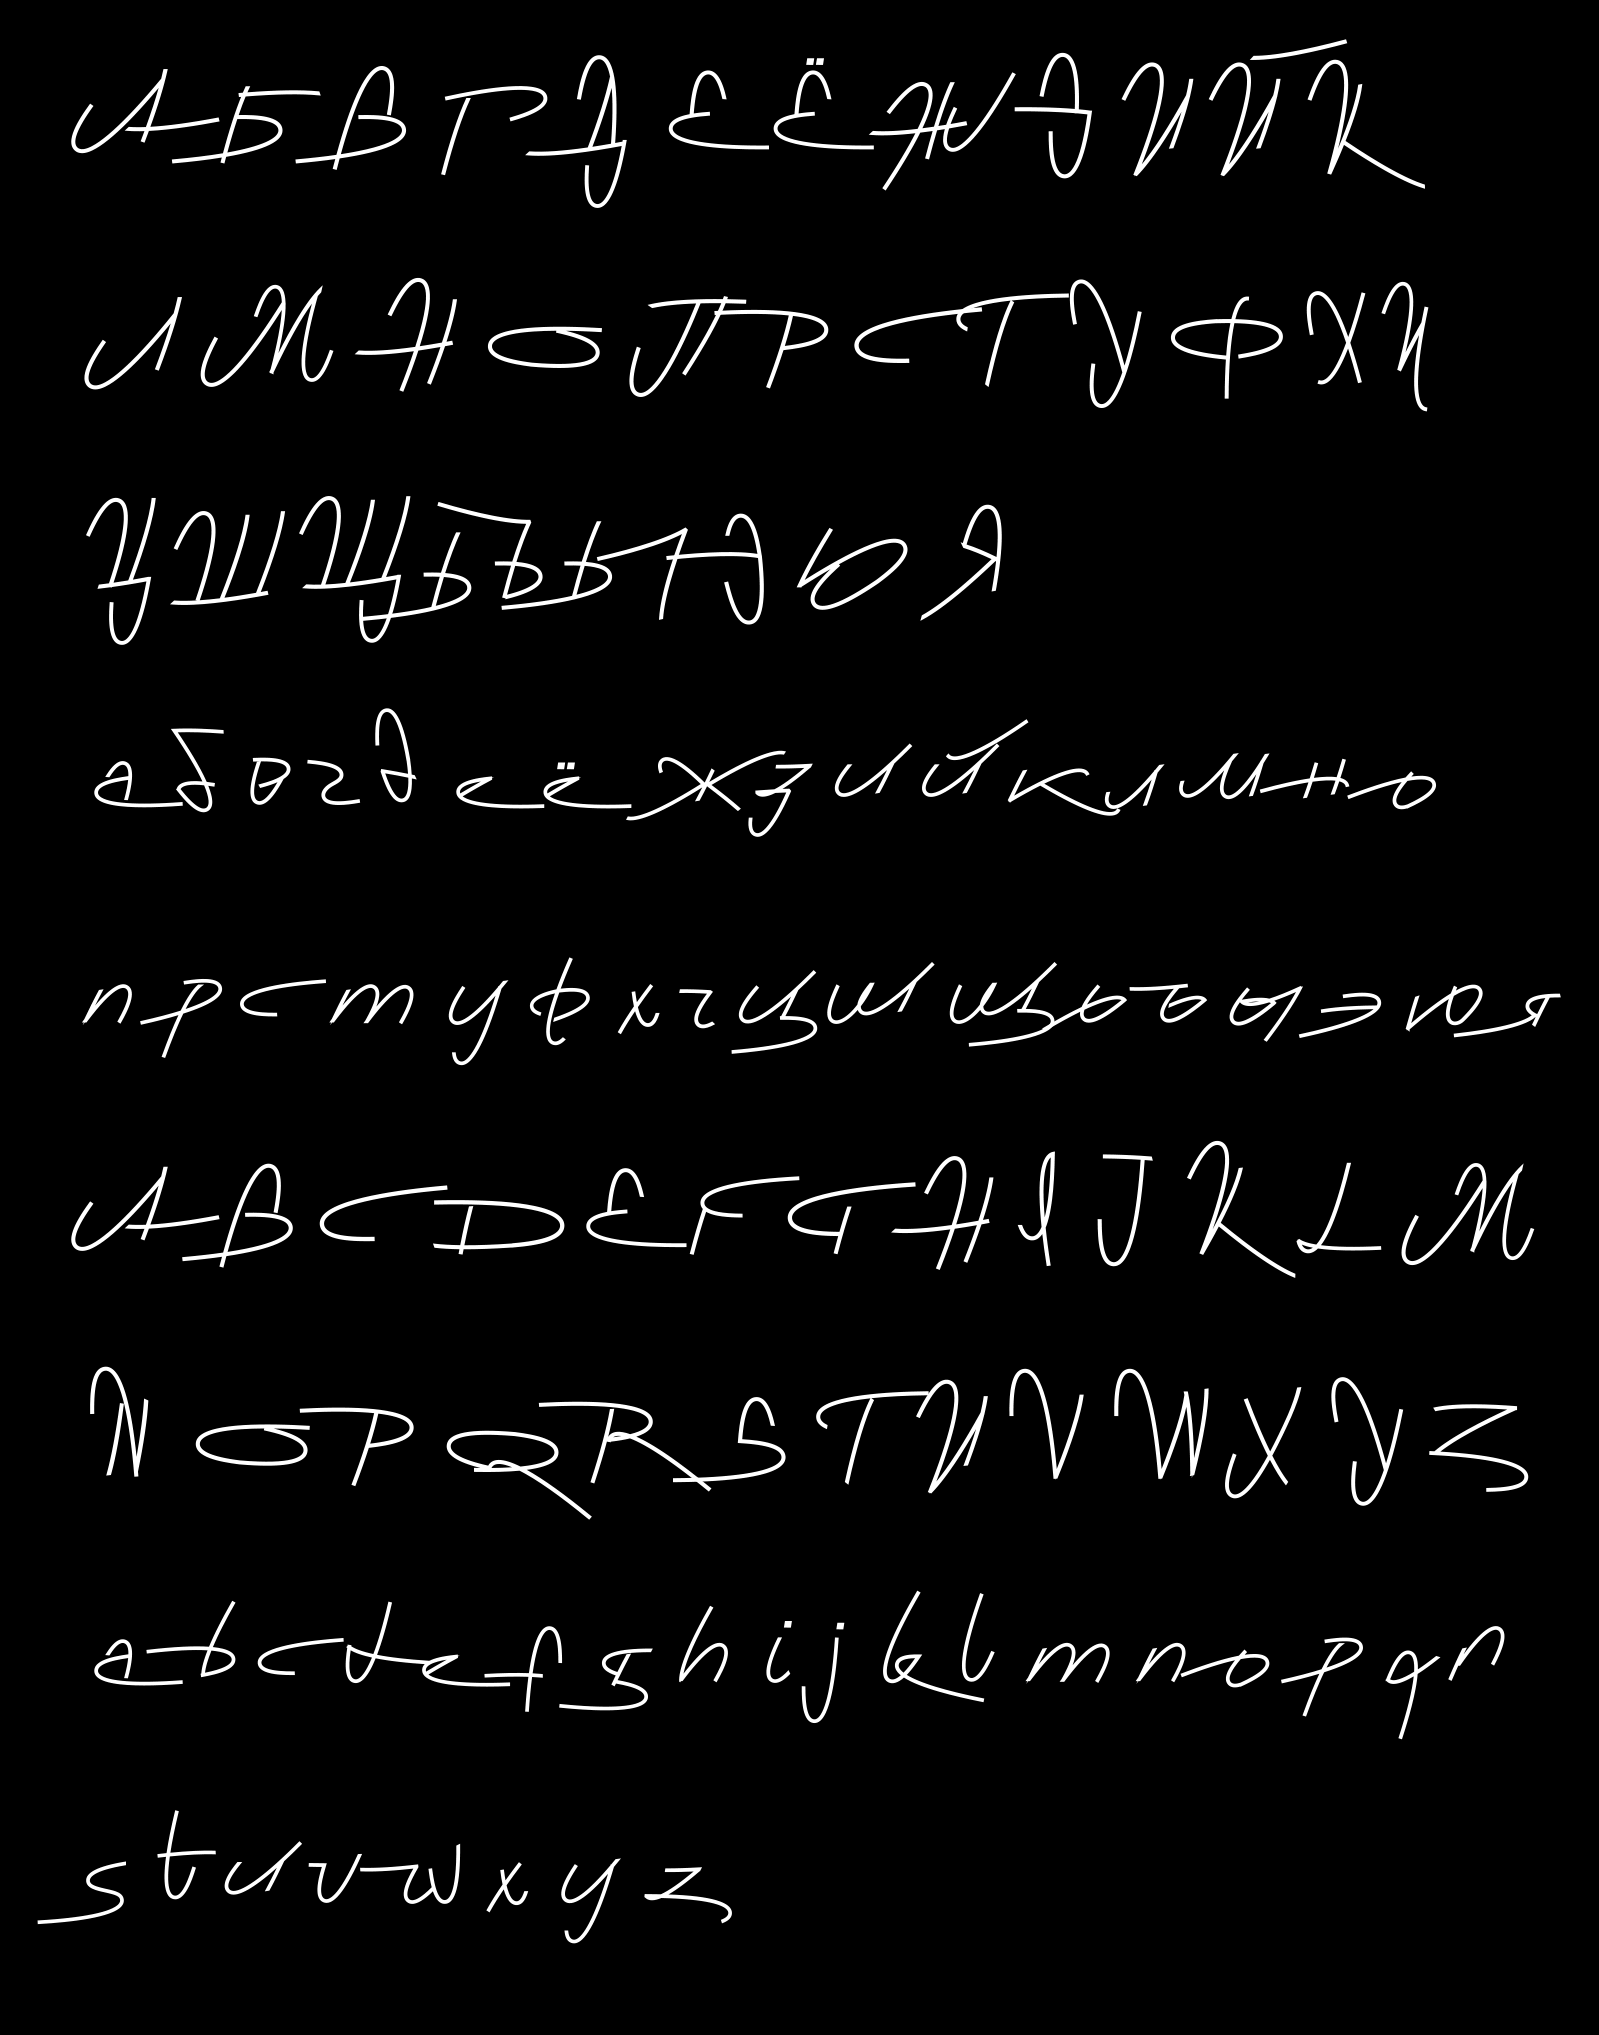 АБВГДЕЁЖЗИЙК
ЛМНОПРСТУФХЧ
ЦШЩЬЪЫЭЮЯ
абвгдеёжзийклмно
прстуфхчцшщьъыэюя
ABCDEFGHIJKLM
NOPQRSTUVWXYZ
abcdefghijklmnopqr
stuvwxyz